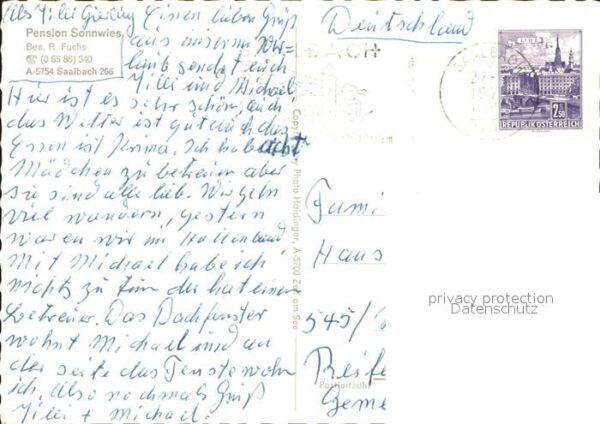 Einen lieben Gruß
Pension Sonnwies
Bes. R. Fuchs
☎ (0 65 86) 340
A-5754 Saalbach 266
aus unserem Ur-
laub sendet euch
Milli und Michael
Hier ist es sehr schön, auch
das Wetter ist gut auch das
Essen ist Prima. Ich habe acht
Mädchen zu betreuen aber
sie sind alle lieb. Wir gehn
viel wandern, gestern
waren wir im Hallenbad
Mit Michael habe ich
nichts zu tun der hat einen
Betreuer. Das Dachfenster
wohnt Michael und an
der seite das Fenster wohn
ich. Also nochmals Gruß
Milli + Michael.
Copyright Photo Hoidinger, A-5700 Zell am See
Deutschland
BACH
2.50
REPUBLIK ÖSTERREICH
Fami
Haus
545/
Reife
Postleitzahl
Geme
privacy protection
Datenschutz